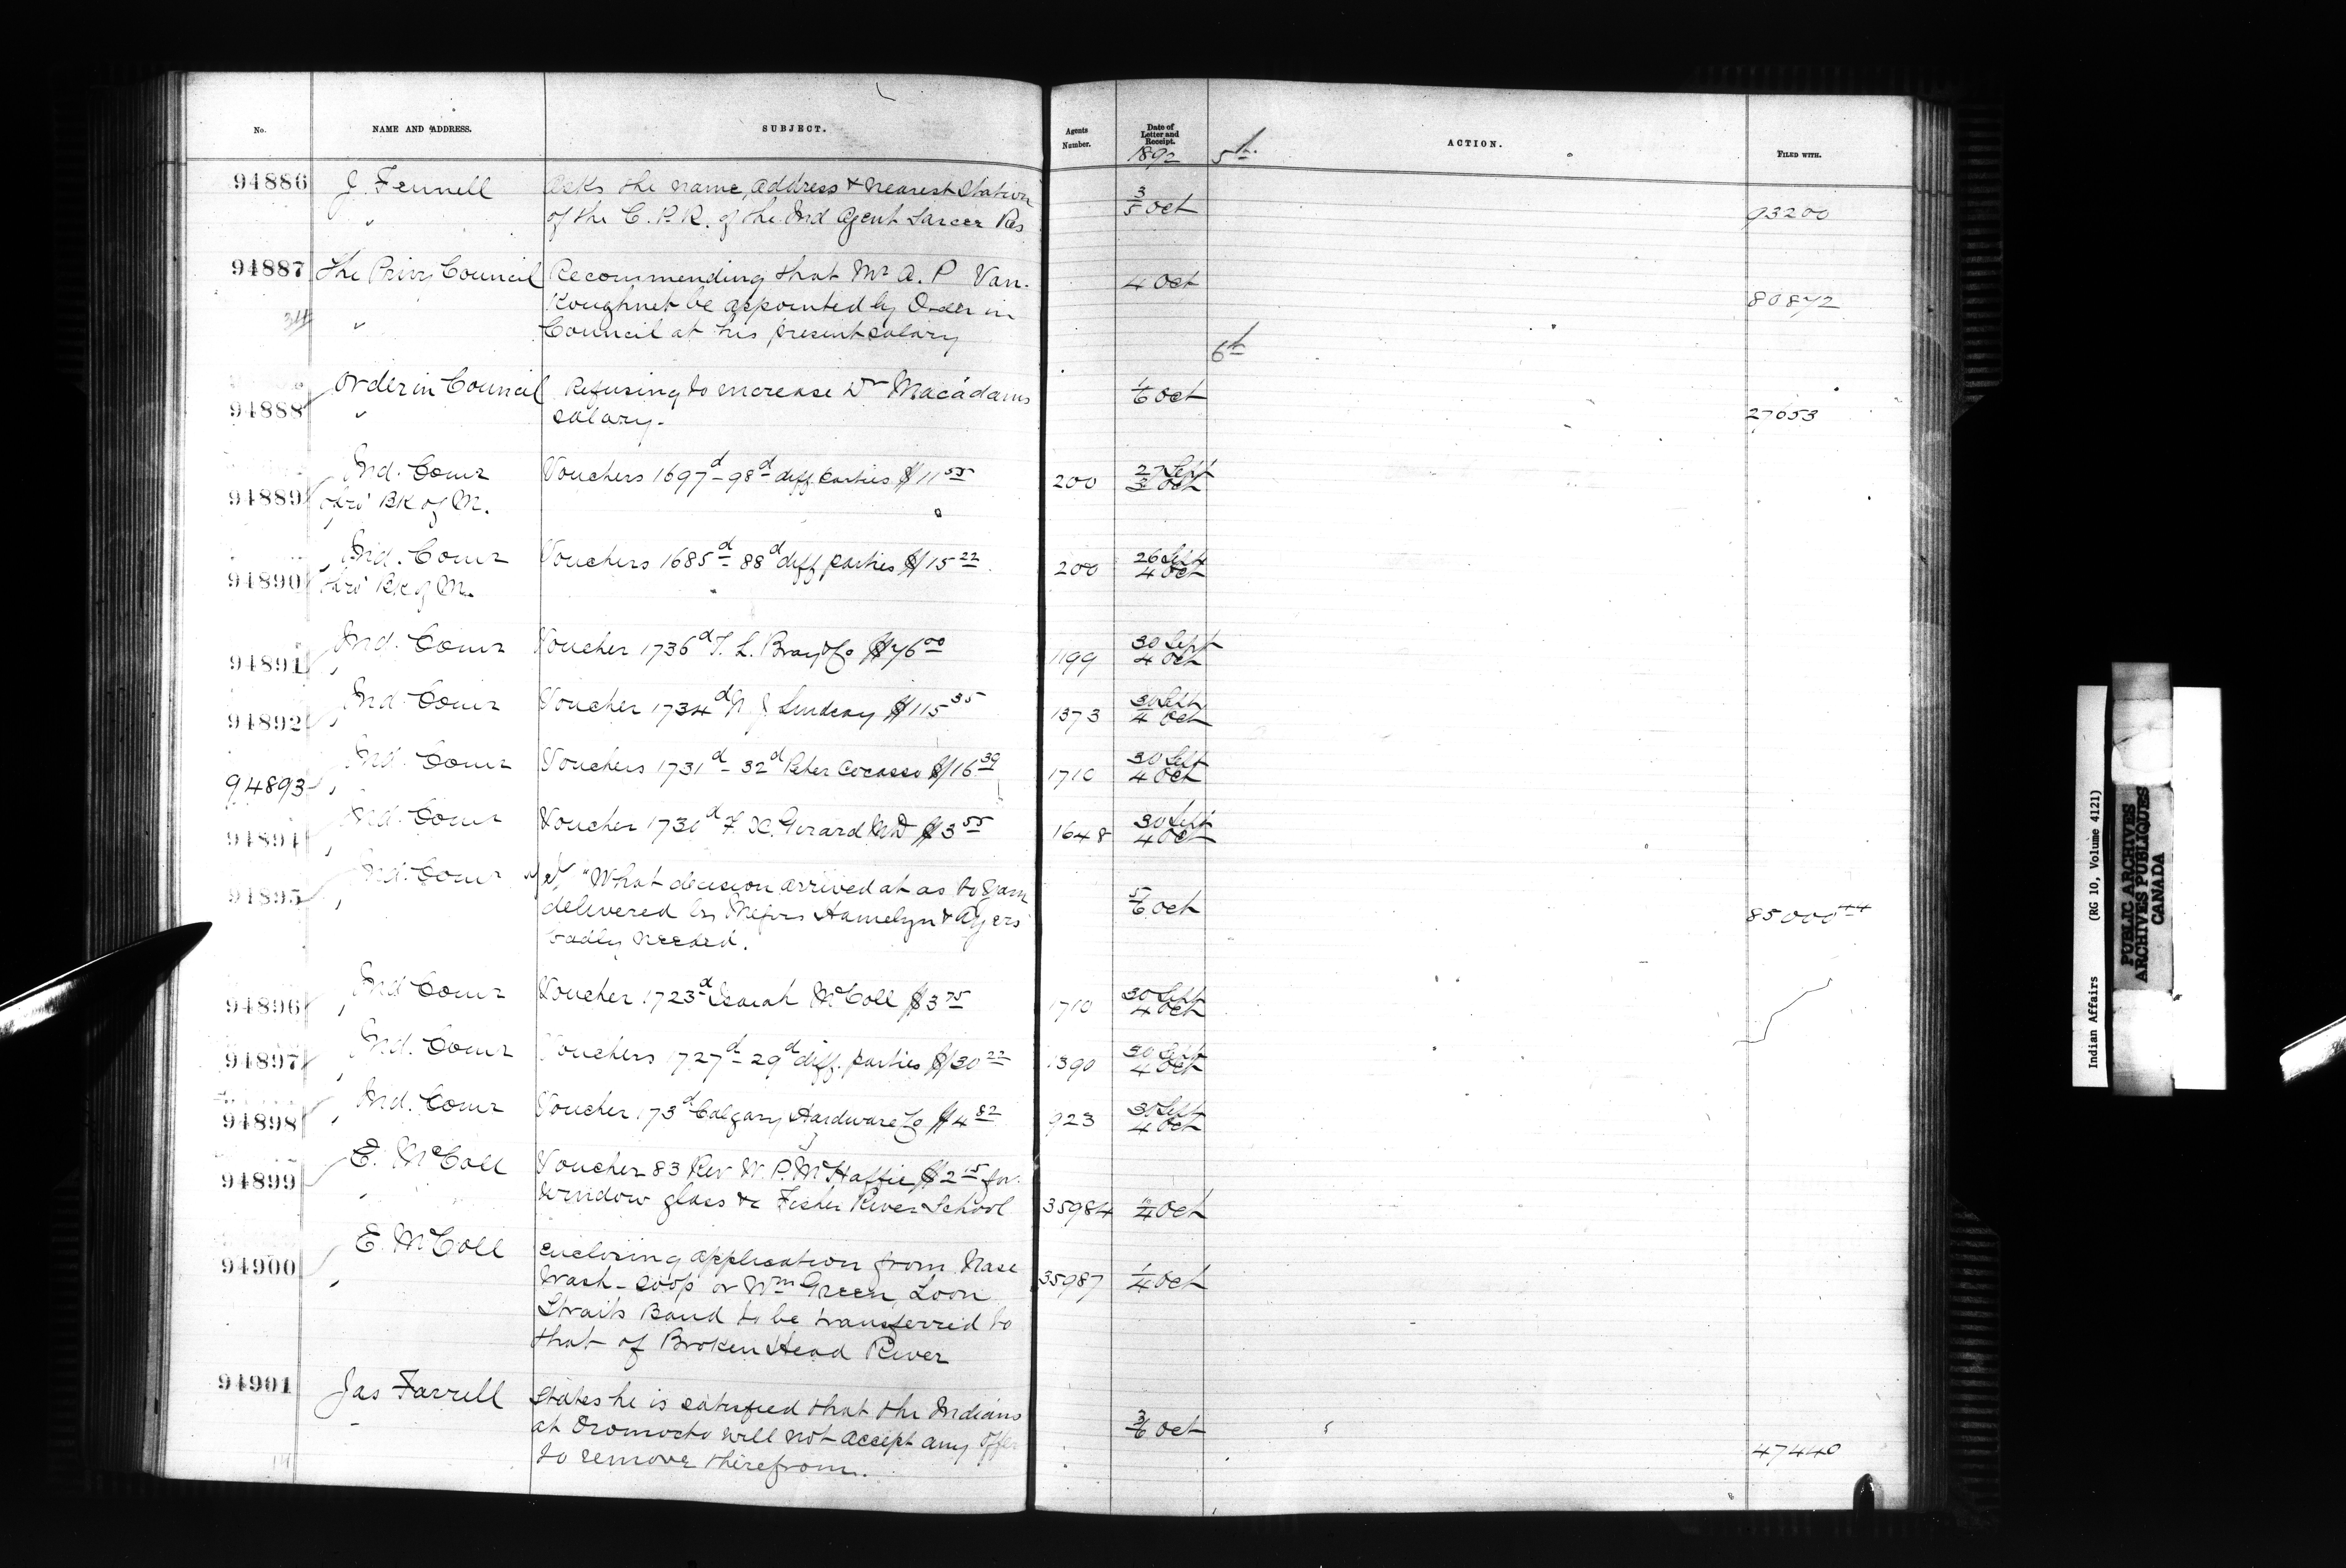 No. NAME AND ADDRESS. SUBJECT. Agents Number. Date of Letter and Receipt. ACTION. FILED WITH.
1892 5th
94886 J. Fennell Asks the name, address & nearest Station 3/5 Oct
" of the C.P.R. of the Ind Agent Sarcee Res 93200
94887 The Privy Council Recommending that Mr A. P Van- 4 Oct
Koughnet be appointed by Order in 80872
34 " Council at his present salary
6th
94888 Order in Council Refusing to increase Dr Macadams 1/6 Oct
" salary. 27653
94889 Ind. Comr Vouchers 1697d - 98d diff parties $11 55 200 27 Sept 3 Oct
Bk of M.
94890 Ind. Comr Vouchers 1685d - 88d diff parties $15 22 200 26 Sept 4 Oct
Bk of M.
94891 Ind. Comr Voucher 1736d T. L. Bray & Co $76 00 1199 30 Sept 4 Oct
94892 Ind. Comr Voucher 1734d N J Lindsay $115 35 1373 30 Sept 4 Oct
94893 Ind. Comr Vouchers 1731d - 32d Peter $16 39 1710 30 Sept 4 Oct
94894 Ind. Comr Voucher 1730d F. X. Girard MD $3 55 1648 30 Sept 4 Oct
94895 Ind. Comr "What decision arrived at as to yarn
delivered by Messrs Hamelyn & Ayers 5/6 Oct 85000 44
badly needed.
94896 Ind Comr Voucher 1723d Isaiah McColl $3 75 1710 30 Sept 4 Oct
94897 Ind. Comr Vouchers 1727d - 29d diff. parties $30 22 1390 30 Sept 4 Oct
94898 Ind. Comr Voucher 173d Calgary Hardware Co $4 82 923 30 Sept 4 Oct
94899 E. McColl Voucher 83 Rev W. P. McHaffie $2 15 for
" window glass &c Fisher River School 35984 /4 Oct
94900 E. McColl enclosing application from Nase
" wash-soop or Wm Green, Loon 35987 1/4 Oct
Straits Band to be transferred to
that of Broken Head River
94901 Jas Farrell States he is satisfied that the Indians
" at Oromocto will not accept any offer 3/6 Oct
to remove therefrom. 47440
Indian Affairs (RG 10, Volume 4121)
PUBLIC ARCHIVES
ARCHIVES PUBLIQUES
CANADA